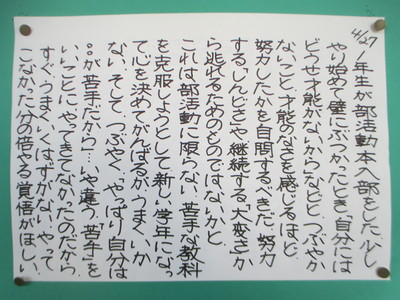 4/27
1年生が部活動本入部をした。少し
やり始めて壁にぶつかったとき「自分には
どうせ才能がないから」などと、つぶやか
ないこと。才能のなさを感じるほど、
努力したかを自問するべきだ。努力
する「しんどさ」や継続する「大変さ」か
ら逃れるためのものではないかと。
これは部活動に限らない。苦手な教科
を克服しようとして新しい学年になっ
て心を決めてがんばるがうまくいか
ない。そして、つぶやく。「やっぱり自分は
○○が苦手だから…」いや違う。「苦手」を
いいことに、やってきてなかったのだから、
すぐうまくいくはずがない。やって
こなかった分の倍やる覚悟がほしい。